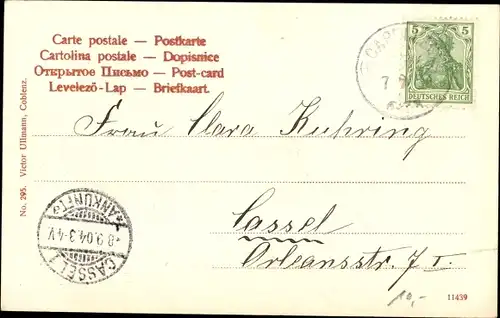 Carte postale — Postkarte
Cartolina postale — Dopisnice
Открытое Письмо — Post-card
Levelező-Lap — Briefkaart.
5 5
DEUTSCHES REICH
Frau Clara Kuhring
Cassel
Orleansstr. 7 I.
No. 295. Victor Ullmann, Coblenz.
CASSEL 1
8.9.04.3-4V.
ANKUNFT
10,-
11439